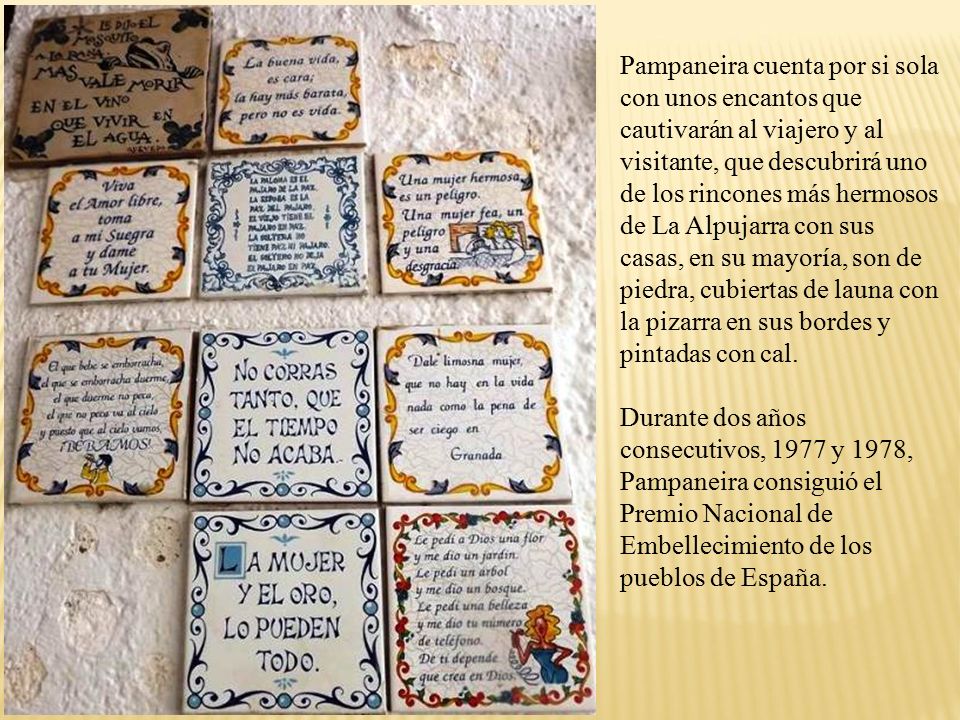 LE DIJO EL
MOSQUITO
A LA RANA.
MAS
VALE MORIR
EN EL VINO
QUE VIVIR EN
EL AGUA.
La buena vida,
es cara;
la hay más barata,
pero no es vida.
Viva
el Amor libre,
toma
a mi Suegra
y dame
a tu Mujer.
LA PALOMA ES EL
PAJARO DE LA PAZ.
LA ESPOSA ES LA
PAZ DEL PAJARO.
EL VIEJO TIENE EL
PAJARO EN PAZ.
LA SOLTERA NO
TIENE PAZ NI PAJARO.
EL SOLTERO NO DEJA
EL PAJARO EN PAZ.
Una mujer hermosa
es un peligro.
Una mujer fea, un
peligro
y una
desgracia.
El que bebe se emborracha,
el que se emborracha duerme,
el que duerme no peca,
el que no peca va al cielo
y puesto que al cielo vamos,
¡BEBAMOS!
NO CORRAS
TANTO, QUE
EL TIEMPO
NO ACABA..
Dale limosna mujer,
que no hay en la vida
nada como la pena de
ser ciego en
Granada
LA MUJER
Y EL ORO,
LO PUEDEN
TODO.
Le pedí a Dios una flor
y me dio un jardín.
Le pedí un árbol
y me dio un bosque.
Le pedí una belleza
y me dio tu número
de teléfono.
De ti depende
que crea en Dios.
Pampaneira cuenta por si sola
con unos encantos que
cautivarán al viajero y al
visitante, que descubrirá uno
de los rincones más hermosos
de La Alpujarra con sus
casas, en su mayoría, son de
piedra, cubiertas de launa con
la pizarra en sus bordes y
pintadas con cal.
Durante dos años
consecutivos, 1977 y 1978,
Pampaneira consiguió el
Premio Nacional de
Embellecimiento de los
pueblos de España.